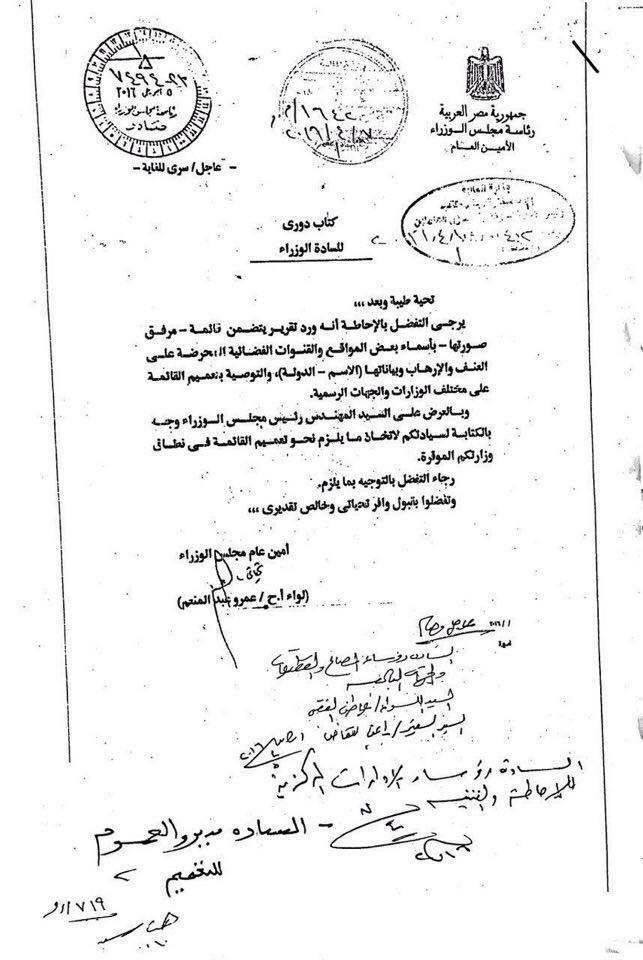 جمهورية مصر العربية
رئاسة مجلس الوزراء
الأمين العام
٧٤٩٤-٢٣
٥ ابريل ٢٠١٦
رئاسة مجلس الوزراء
صادر
- عاجل/ سرى للغاية -
١٦٤٢
٢٠١٦/٤/٧
وزارة المالية
كتاب دورى
للسادة الوزراء
تحية طيبة وبعد ,,,
يرجى التفضل بالإحاطة أنه ورد تقرير يتضمن قائمة - مرفق
صورتها - بأسماء بعض المواقع والقنوات الفضائية المحرضة على
العنف والإرهاب وبياناتها (الاسم - الدولة)، والتوصية بتعميم القائمة
على مختلف الوزارات والجهات الرسمية.
وبالعرض على السيد المهندس رئيس مجلس الوزراء وجه
بالكتابة لسيادتكم لاتخاذ ما يلزم نحو تعميم القائمة فى نطاق
وزارتكم الموقرة.
رجاء التفضل بالتوجيه بما يلزم.
وتفضلوا بقبول وافر تحياتى وخالص تقديرى ,,,
أمين عام مجلس الوزراء
(لواء أ.ح / عمرو عبد المنعم)
عاجل وهام
السادة رؤساء المصالح والقطاعات
والجهات التابعة
السادة رؤساء الإدارات المركزية
للإحاطة والتنبيه
- الساده مديرو العموم
للتعميم